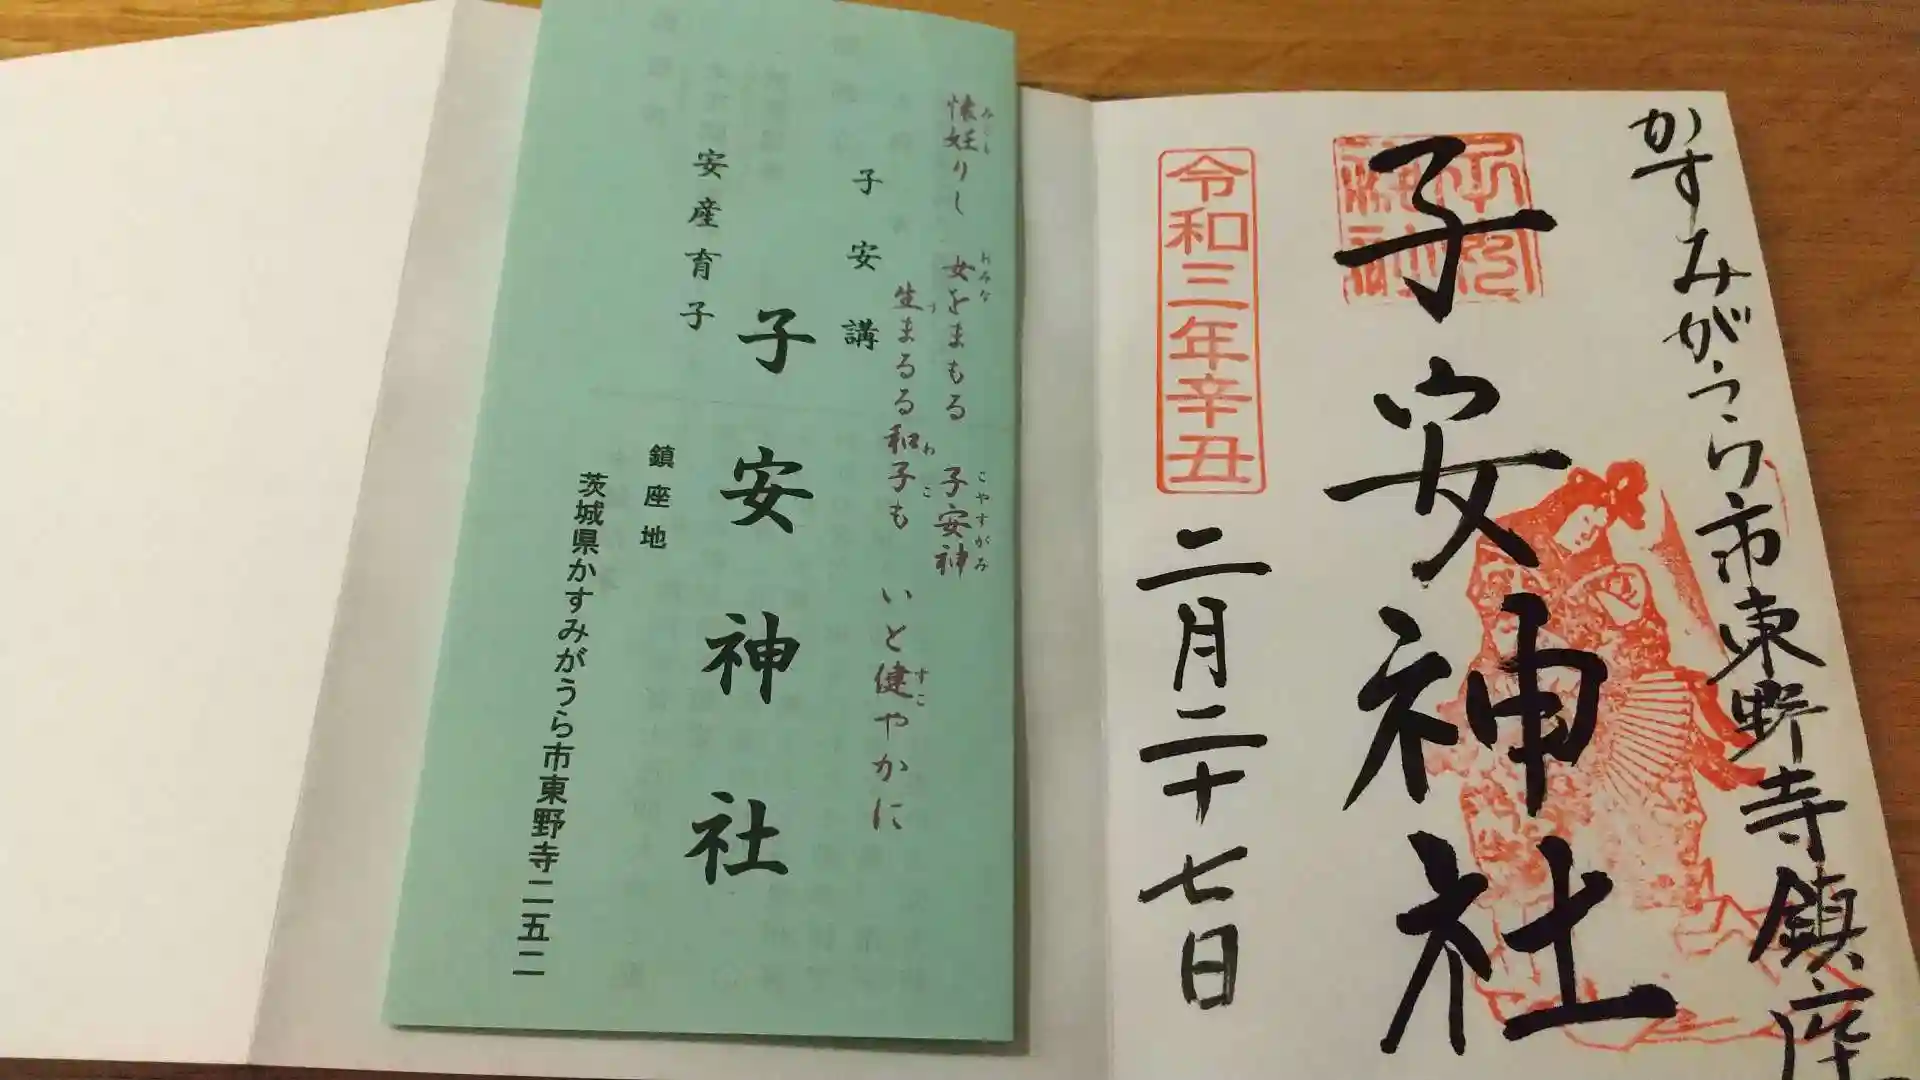 かすみがうら市東野寺鎮座
子安神社
令和三年辛丑
二月二十七日
懐妊りし 女をまもる 子安神
みごし
おみな
こやすがみ
生まるる和子も いと健やかに
う
わこ
すこ
子安講
子安神社
安産育子
鎮座地
茨城県かすみがうら市東野寺二五二